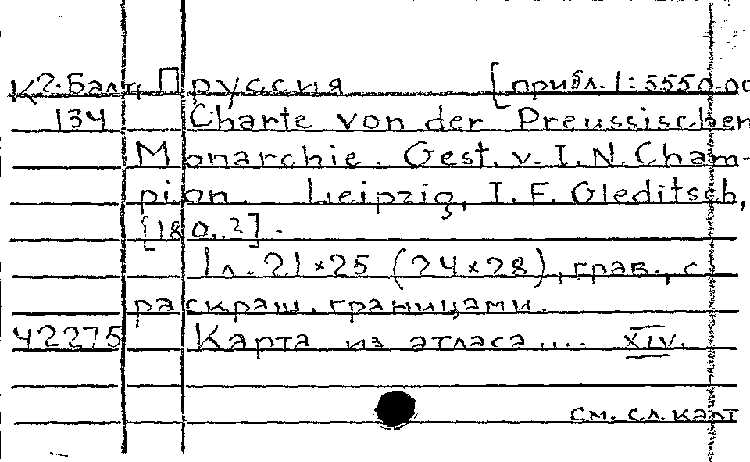 К2-Балт Пруссия [прибл. 1:5550.00
134 Charte von der Preussischen
Monarchie. Gest. v. I. N. Cham-
pion. Leipzig, I. F. Gleditsch,
[180.?].
1 л. 21×25 (24×28), грав., с
раскраш. границами.
42275 Карта из атласа.... XIV.
см. сл. карт